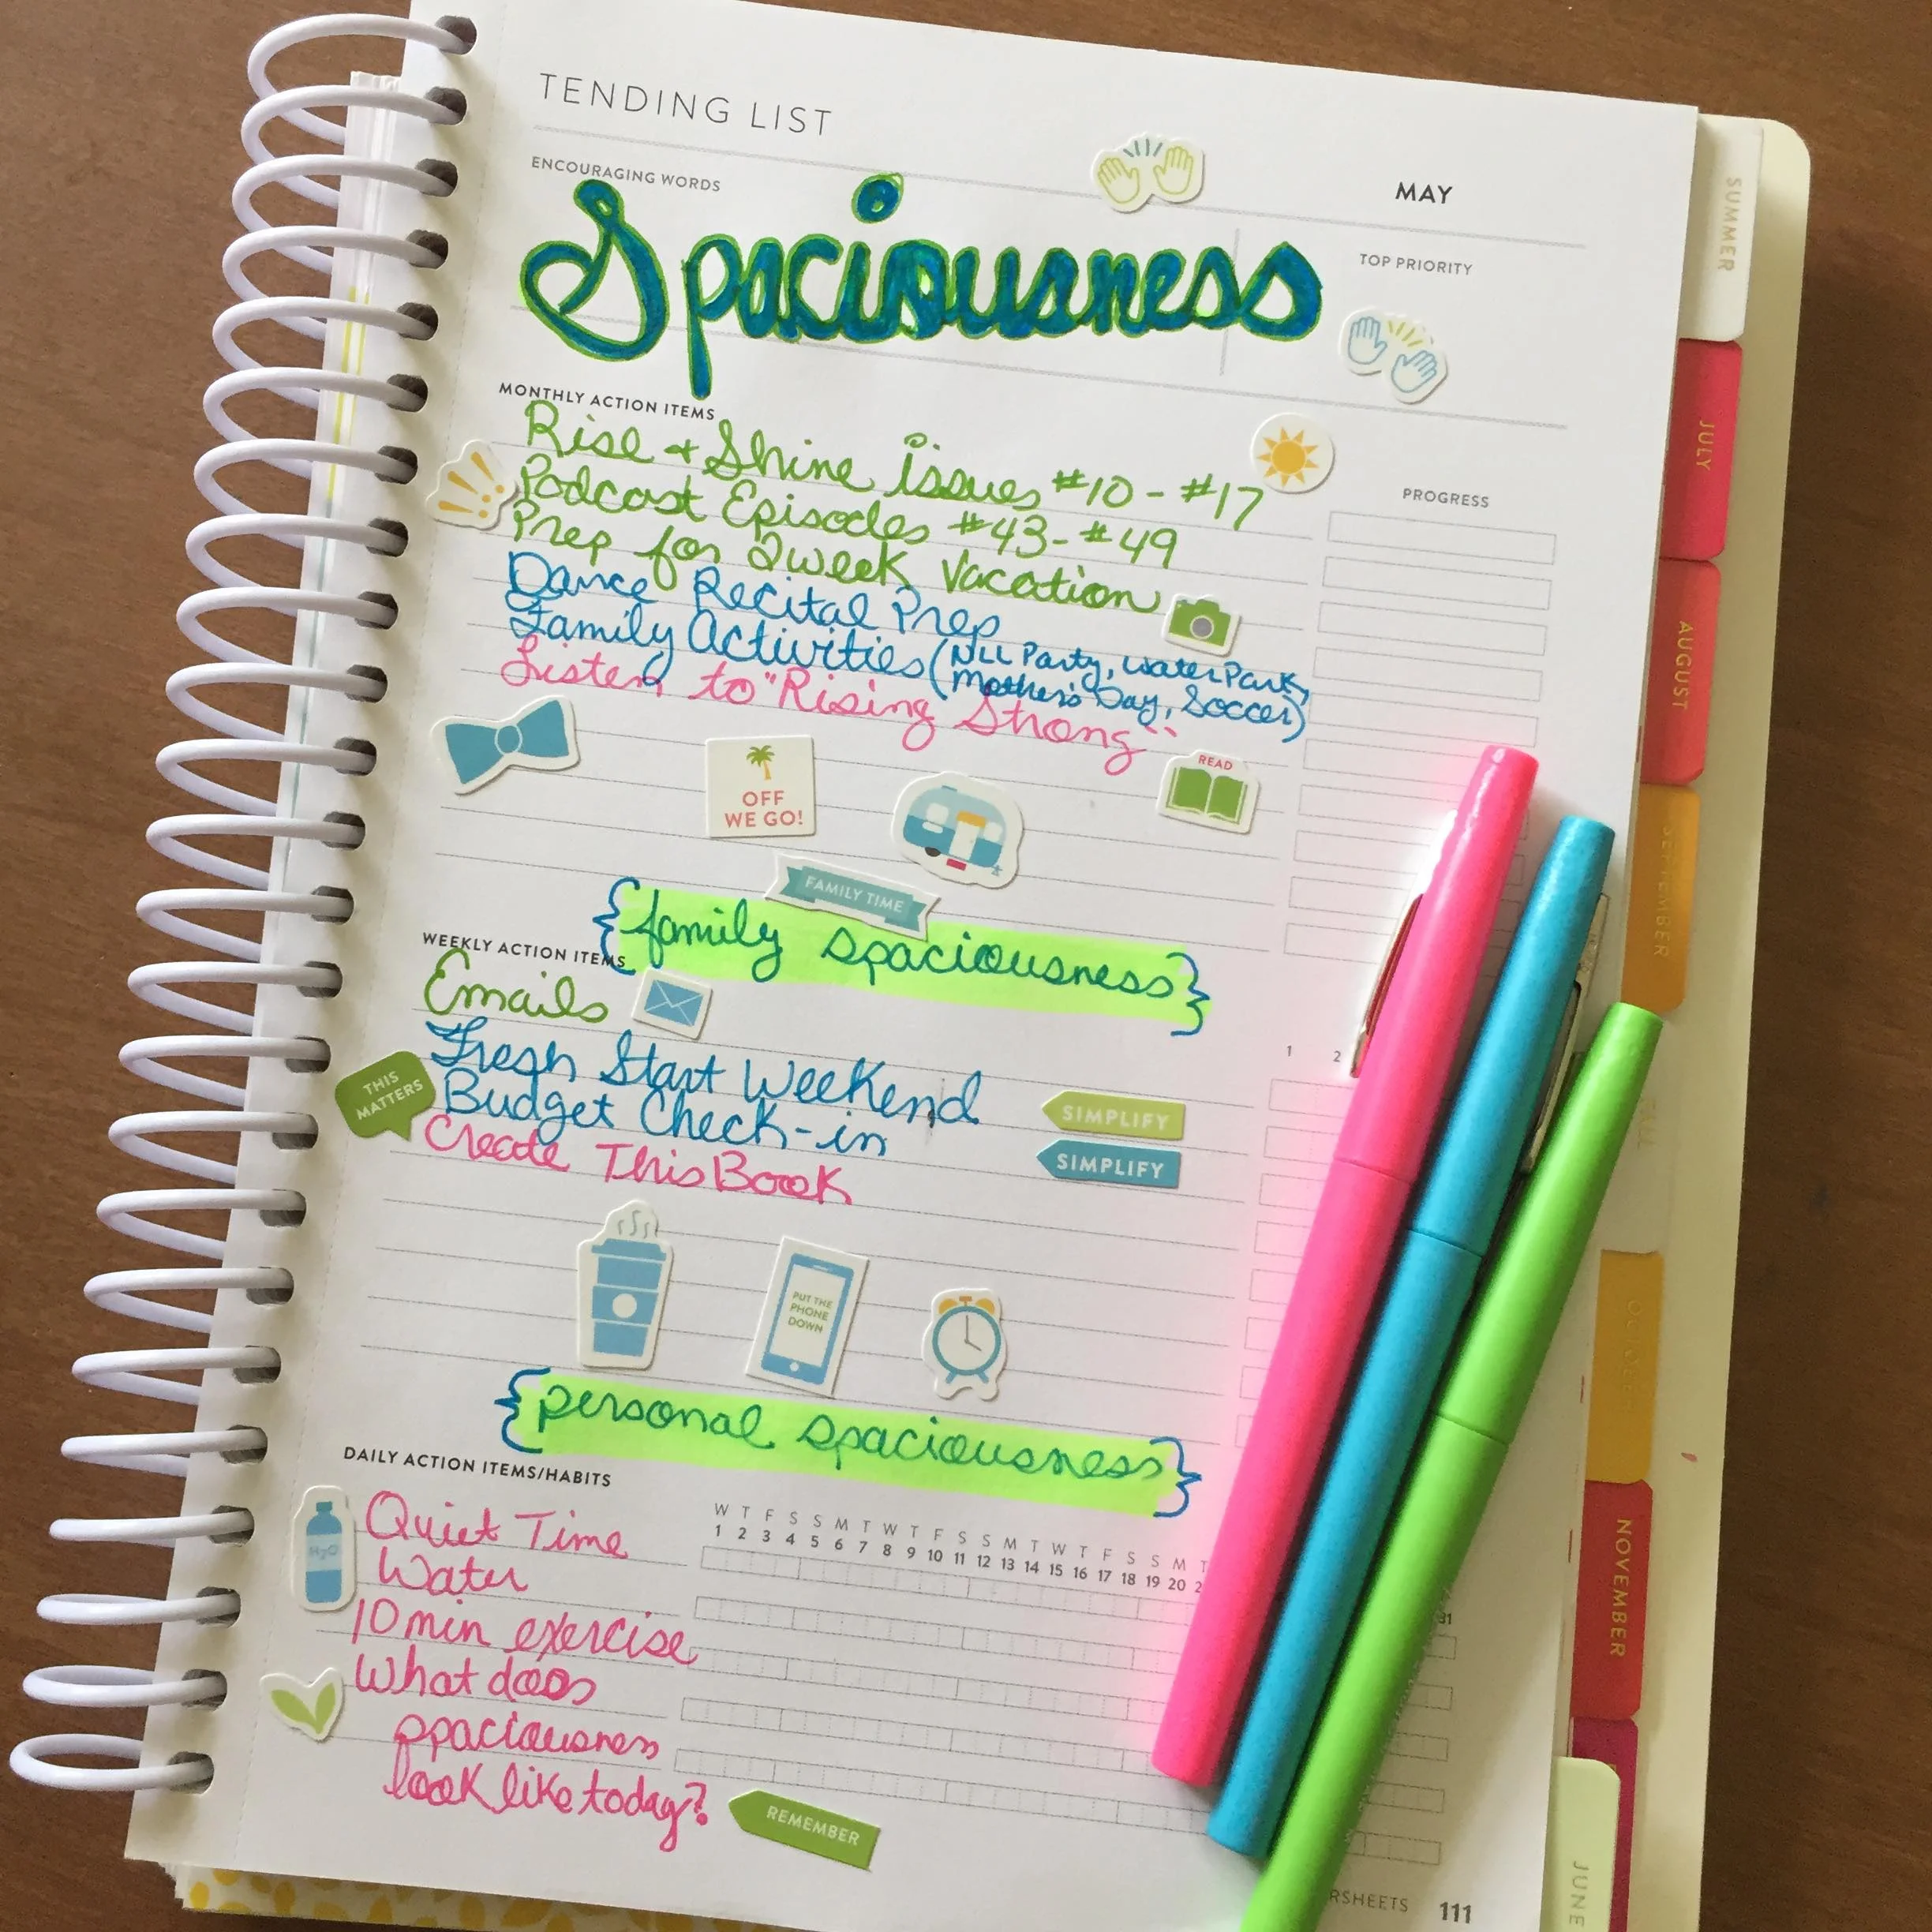 TENDING LIST
ENCOURAGING WORDS
MAY
Spaciousness
TOP PRIORITY
MONTHLY ACTION ITEMS
Rise + Shine issues #10 - #17
Podcast Episodes #43 - #49
Prep for 2 week Vacation
Dance Recital Prep
Family Activities (NLL Party, Water Park,
Mother's Day, Soccer)
Listen to "Rising Strong"
PROGRESS
OFF
WE GO!
READ
FAMILY TIME
{family spaciousness}
WEEKLY ACTION ITEMS
Emails
Fresh Start Weekend
Budget Check-in
Create This Book
THIS
MATTERS
SIMPLIFY
SIMPLIFY
1 2
PUT THE
PHONE
DOWN
{personal spaciousness}
DAILY ACTION ITEMS/HABITS
W T F S S M T W T F S S M T W T F S S M T
1 2 3 4 5 6 7 8 9 10 11 12 13 14 15 16 17 18 19 20 2
31
H2O
Quiet Time
Water
10 min exercise
What does
spaciousness
look like today?
REMEMBER
RSHEETS 111
SUMMER
JULY
AUGUST
SEPTEMBER
FALL
OCTOBER
NOVEMBER
JUNE